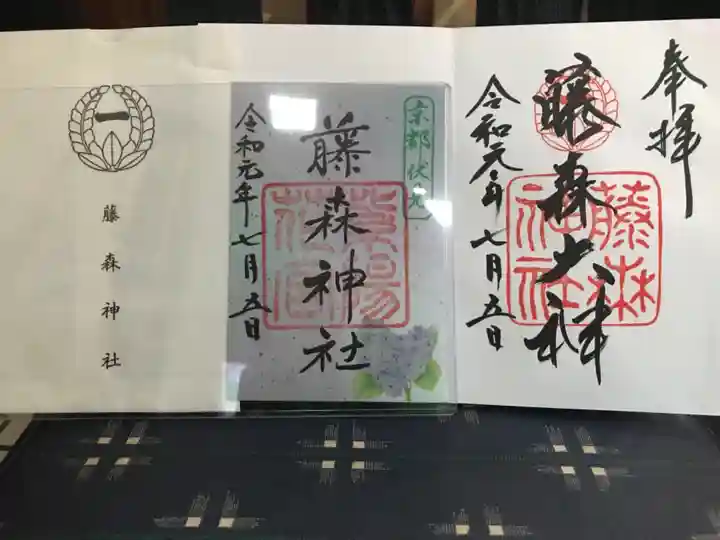 奉拝
藤森大神
令和元年七月五日
藤森神社
京都 伏見
藤森神社
令和元年七月五日
紫陽花宮
一
藤森神社